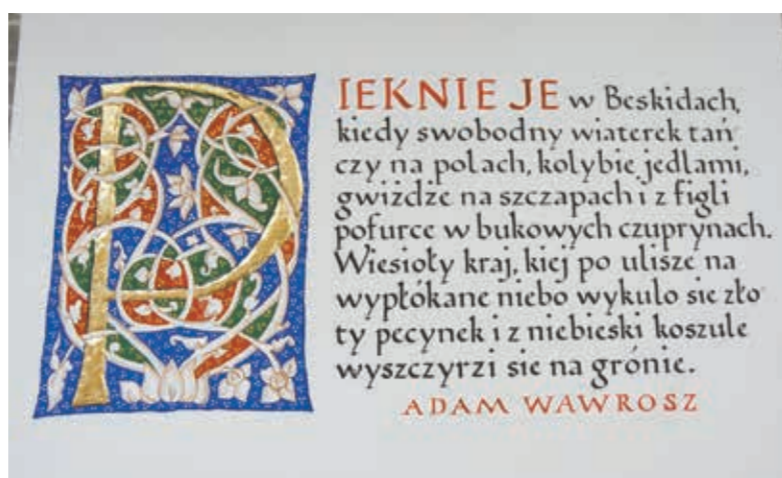 PIEKNIE JE w Beskidach,
kiedy swobodny wiaterek tań
czy na polach, kolybie jedlami,
gwiżdże na szczapach i z figli
pofurce w bukowych czuprynach.
Wiesioły kraj, kiej po ulisze na
wypłókane niebo wykulo sie zło
ty pecynek i z niebieski koszule
wyszczyrzi sie na grónie.
ADAM WAWROSZ